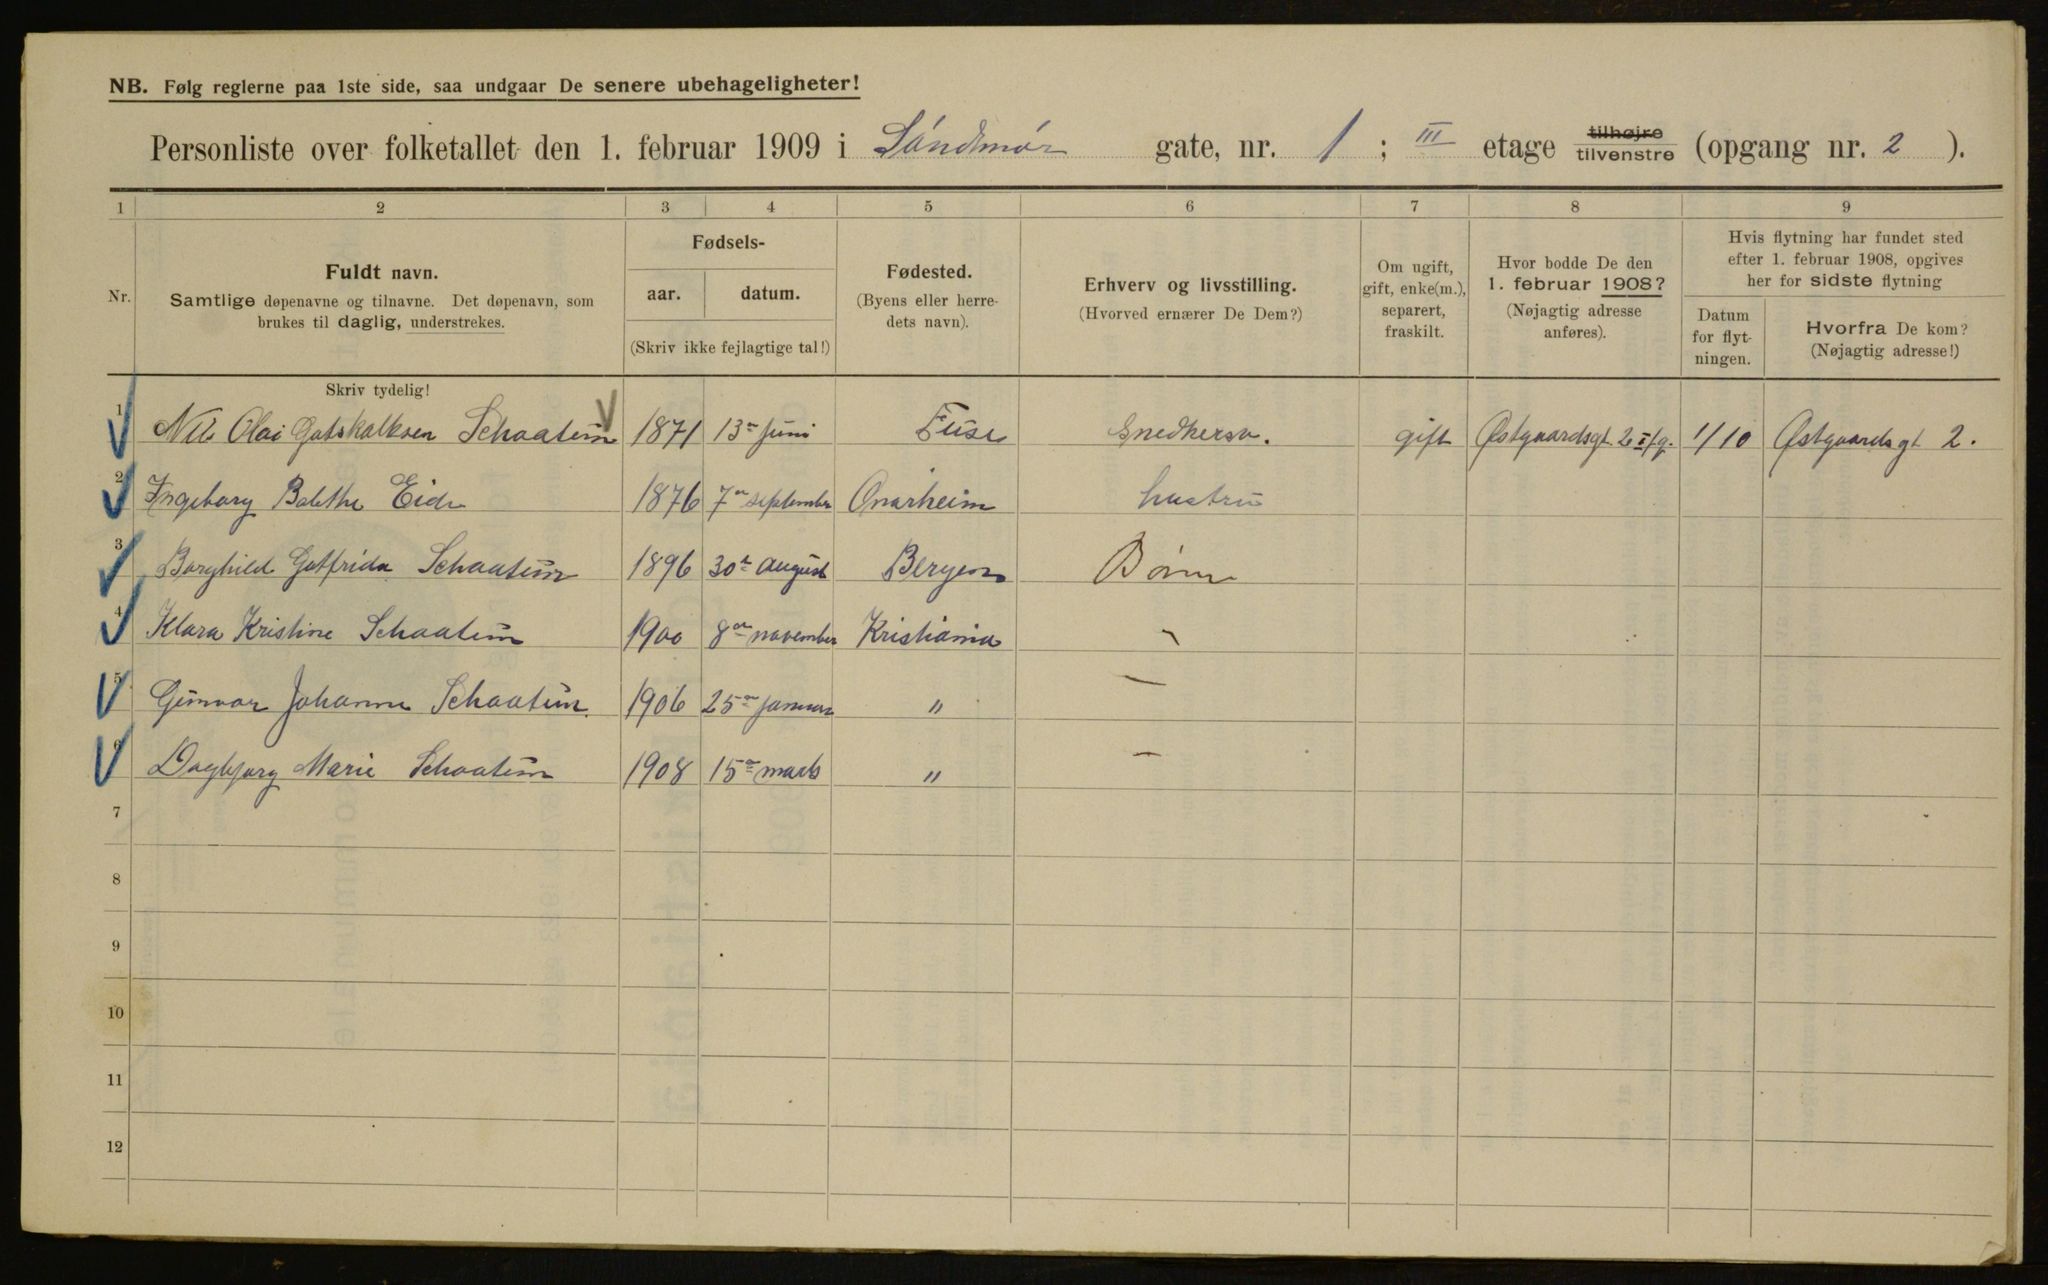 NB. Følg reglerne paa 1ste side, saa undgaar De senere ubehageligheter!
Personliste over folketallet den 1. februar 1909 i Sóndmór gate, nr. 1 ; III etage tilhøjre tilvenstre (opgang nr. 2 ).
1 2 3 4 5 6 7 8 9
Nr.
Fuldt navn.
Samtlige døpenavne og tilnavne. Det døpenavn, som
brukes til daglig, understrekes.
Fødsels-
aar. datum.
(Skriv ikke fejlagtige tal!)
Fødested.
(Byens eller herre-
dets navn).
Erhverv og livsstilling.
(Hvorved ernærer De Dem?)
Om ugift,
gift, enke(m.),
separert,
fraskilt.
Hvor bodde De den
1. februar 1908?
(Nøjagtig adresse
anføres).
Hvis flytning har fundet sted
efter 1. februar 1908, opgives
her for sidste flytning
Datum
for flyt-
ningen.
Hvorfra De kom?
(Nøjagtig adresse!)
Skriv tydelig!
1 Nils Olai Gotskalksen Schaatun 1871 13de juni Fuse Snedkersv. gift Østgaardsgt. 2 1/10 Østgaardsgt 2.
2 Ingeborg Balethe Eide 1876 7de september Onarheim hustru
3 Borghild Gotfrida Schaatun 1896 30te august Bergen Børn
4 Klara Kristine Schaatun 1900 8de november Kristiania "
5 Gunvor Johanne Schaatun. 1906 25de januar " —
6 Dagbjørg Marie Schaatun 1908 15de marts " —
7
8
9
10
11
12